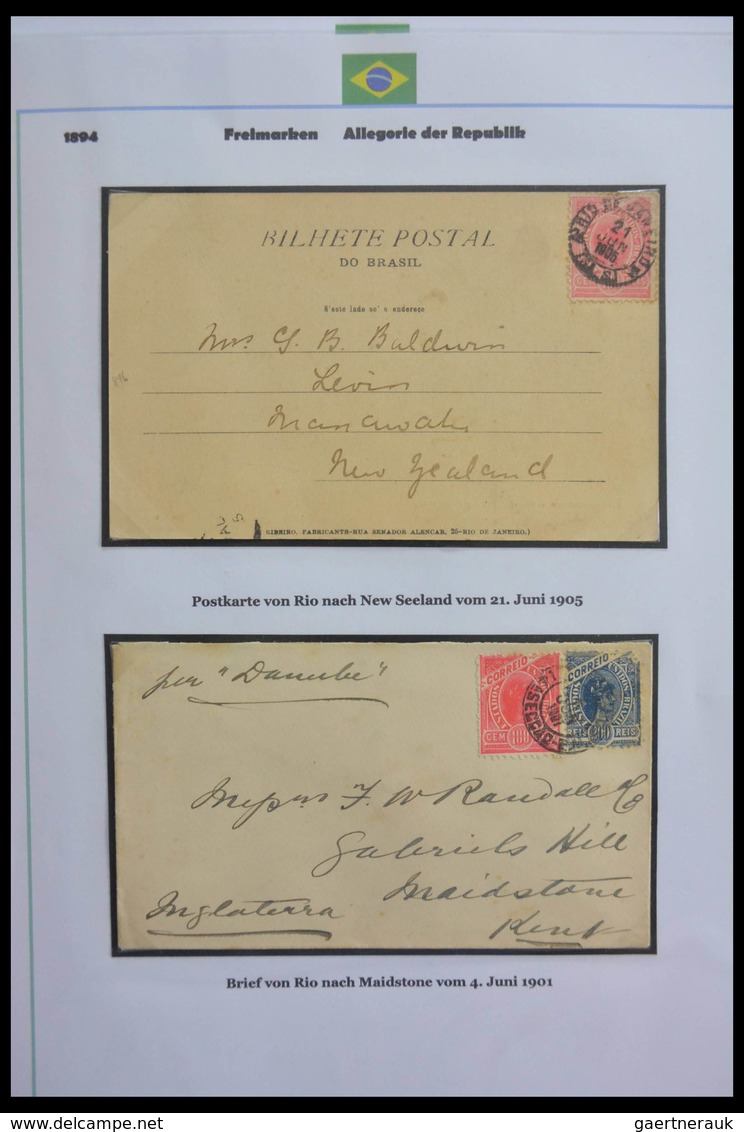 1894 Freimarken Allegorie der Republik
BILHETE POSTAL
DO BRASIL
N'este lado so' o endereço
RIO DE JANEIRO
21
JUN
CEM
Mrs G. B. Baldwin
Levin
Manawatu
New Zealand
RIBEIRO. FABRICANTE-RUA SENADOR ALENCAR, 25-RIO DE JANEIRO.)
Postkarte von Rio nach New Seeland vom 21. Juni 1905
per "Danube"
CORREIO
ESTADOS
CEM 100
CORREIO
ESTADOS BRAZIL
REIS 200 REIS
Messrs F. W Randall & Co
Gabriels Hill
Maidstone
Inglaterra
Kent
Brief von Rio nach Maidstone vom 4. Juni 1901
gaertnerauk